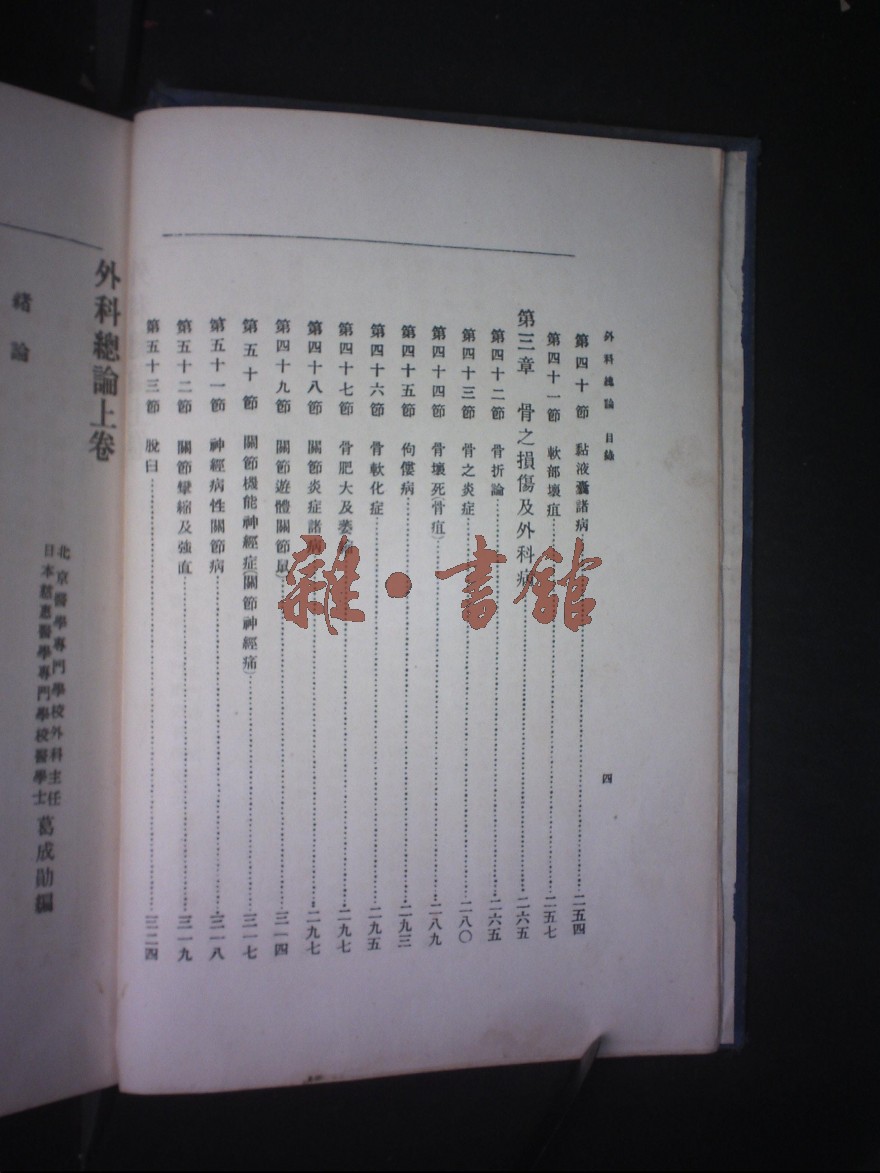 外科總論 目錄
第四十節 黏液囊諸病……二五四
第四十一節 軟部壞疽……二五七
第三章 骨之損傷及外科病……二六五
第四十二節 骨折論……二六五
第四十三節 骨之炎症……二八〇
第四十四節 骨壞死(骨疽)……二八九
第四十五節 佝僂病……二九三
第四十六節 骨軟化症……二九五
第四十七節 骨肥大及萎縮……二九七
第四十八節 關節炎症諸病……二九七
第四十九節 關節遊體(關節鼠)……三一四
第五十節 關節機能神經症(關節神經痛)……三一七
第五十一節 神經病性關節病……三一八
第五十二節 關節攣縮及強直……三一九
第五十三節 脫臼……三二四
四
外科總論上卷
北京醫學專門學校外科主任
日本慈惠醫學專門學校醫學士
葛成勛編
緒論
雜·書館